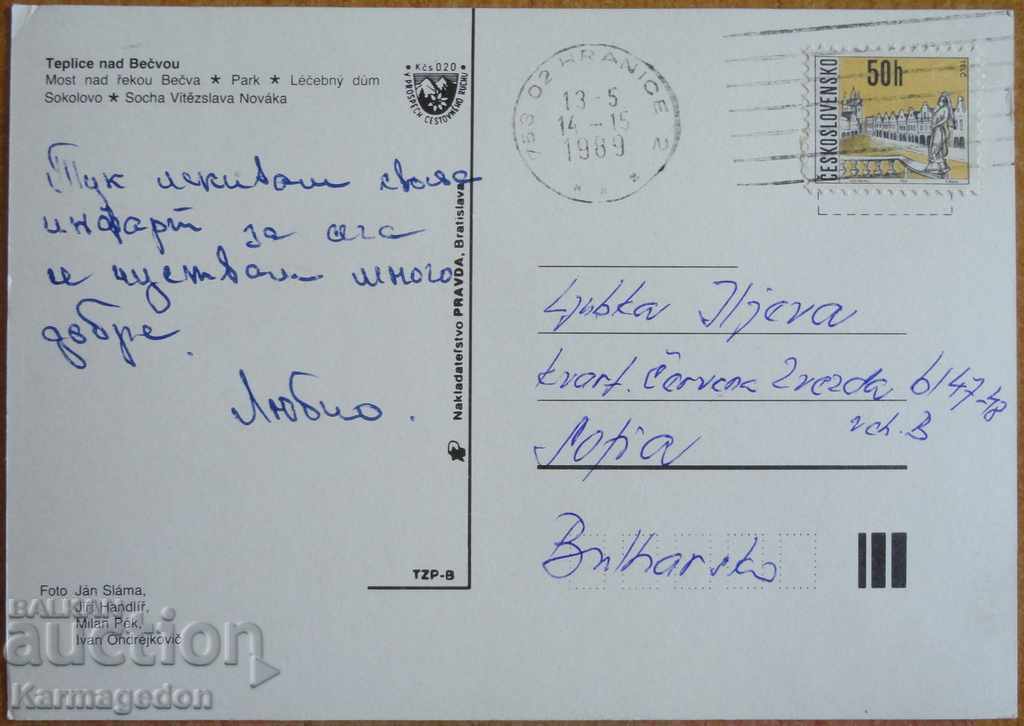 Teplice nad Bečvou
Most nad řekou Bečva ★ Park ★ Léčebný dům
Sokolovo ★ Socha Vítězslava Nováka
Kčs 0,20
V PROSPĚCH CESTOVNÉHO RUCHU
753 02 HRANICE 2
13-5
14-15
1989
ČESKOSLOVENSKO
50h
TELČ
Тук лекивам своя
инфарт за сега
и чуствам много
добре.
Любчо.
Nakladateľstvo PRAVDA, Bratislava
TZP-B
Ljubka Iljeva
kvart. Červena Zvezda bl 47-48
vch. B
Sofia
Bulharsko
Foto Ján Sláma,
Jiří Handlíř,
Milan Pék,
Ivan Ondrejkovič
BALKAN
auction
Karmagedon